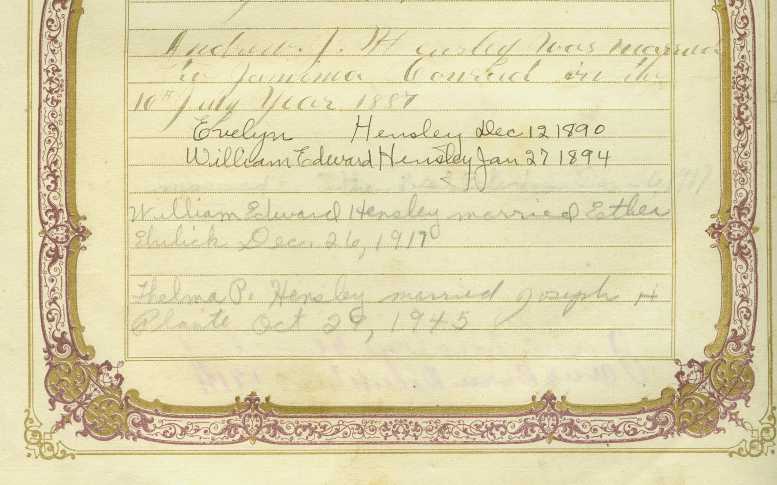 Andrew. J. Hensley was married
to Jamima Conrad in the
10th July Year 1887
Evelyn Hensley Dec 12 1890
William Edward Hensley Jan 27 1894
William Edward Hensley married Esther
Ehrlick Dec. 26, 1917
Thelma P. Hensley married Joseph H
Plante Oct 29, 1945